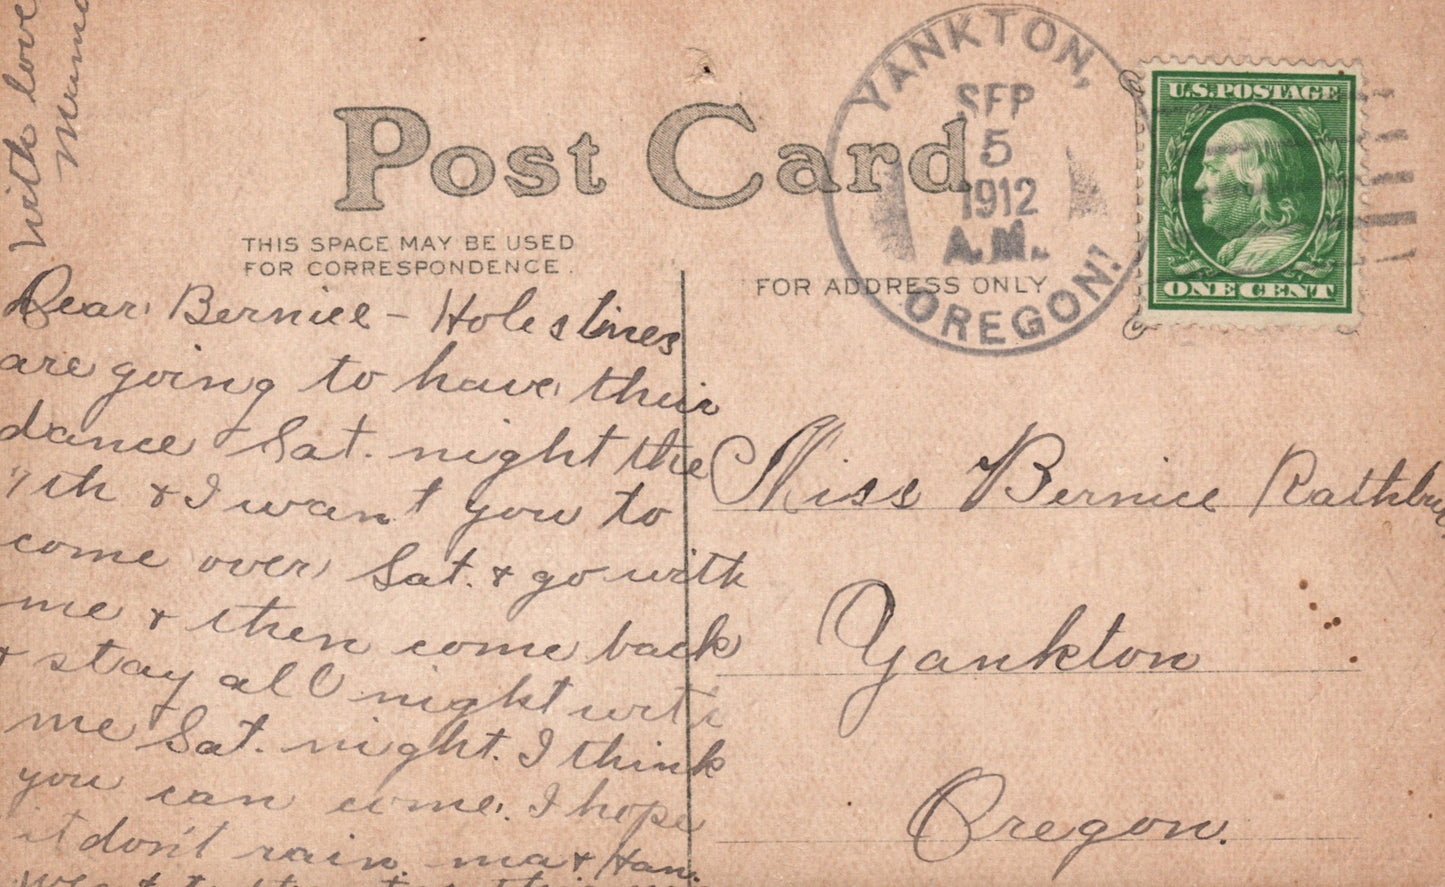 With love
Post Card
THIS SPACE MAY BE USED
FOR CORRESPONDENCE.
FOR ADDRESS ONLY
YANKTON,
SEP
5
1912
A.M.
OREGON
U.S. POSTAGE
ONE CENT
Dear Bernice - Holstines
are going to have their
dance Sat. night the
7th & I want you to
come over Sat. & go with
me & then come back
& stay all night with
me Sat. night. I think
you can come. I hope
it don't rain. ma &
Miss Bernice Rathbun
Yankton
Oregon.